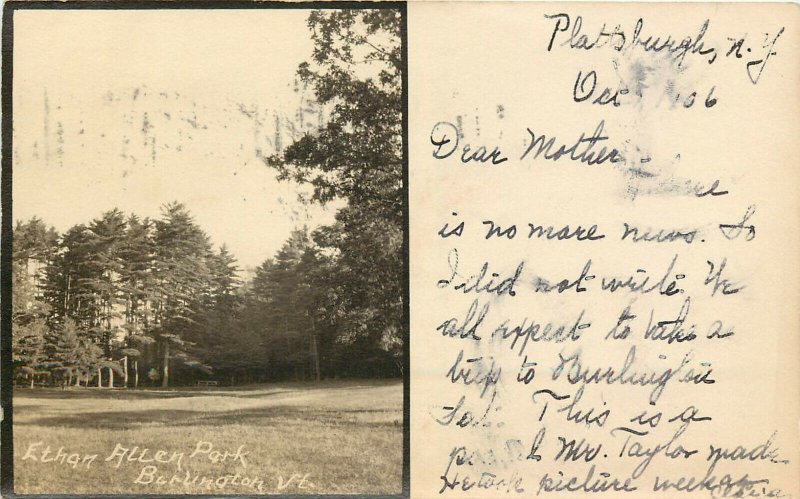 Ethan Allen Park
Burlington Vt.
Plattsburgh, N.Y.
Oct 06
Dear Mother
is no more news. So
I did not write. We
all expect to take a
trip to Burlington
Sat. This is a
Mr. Taylor made
He took picture week ago